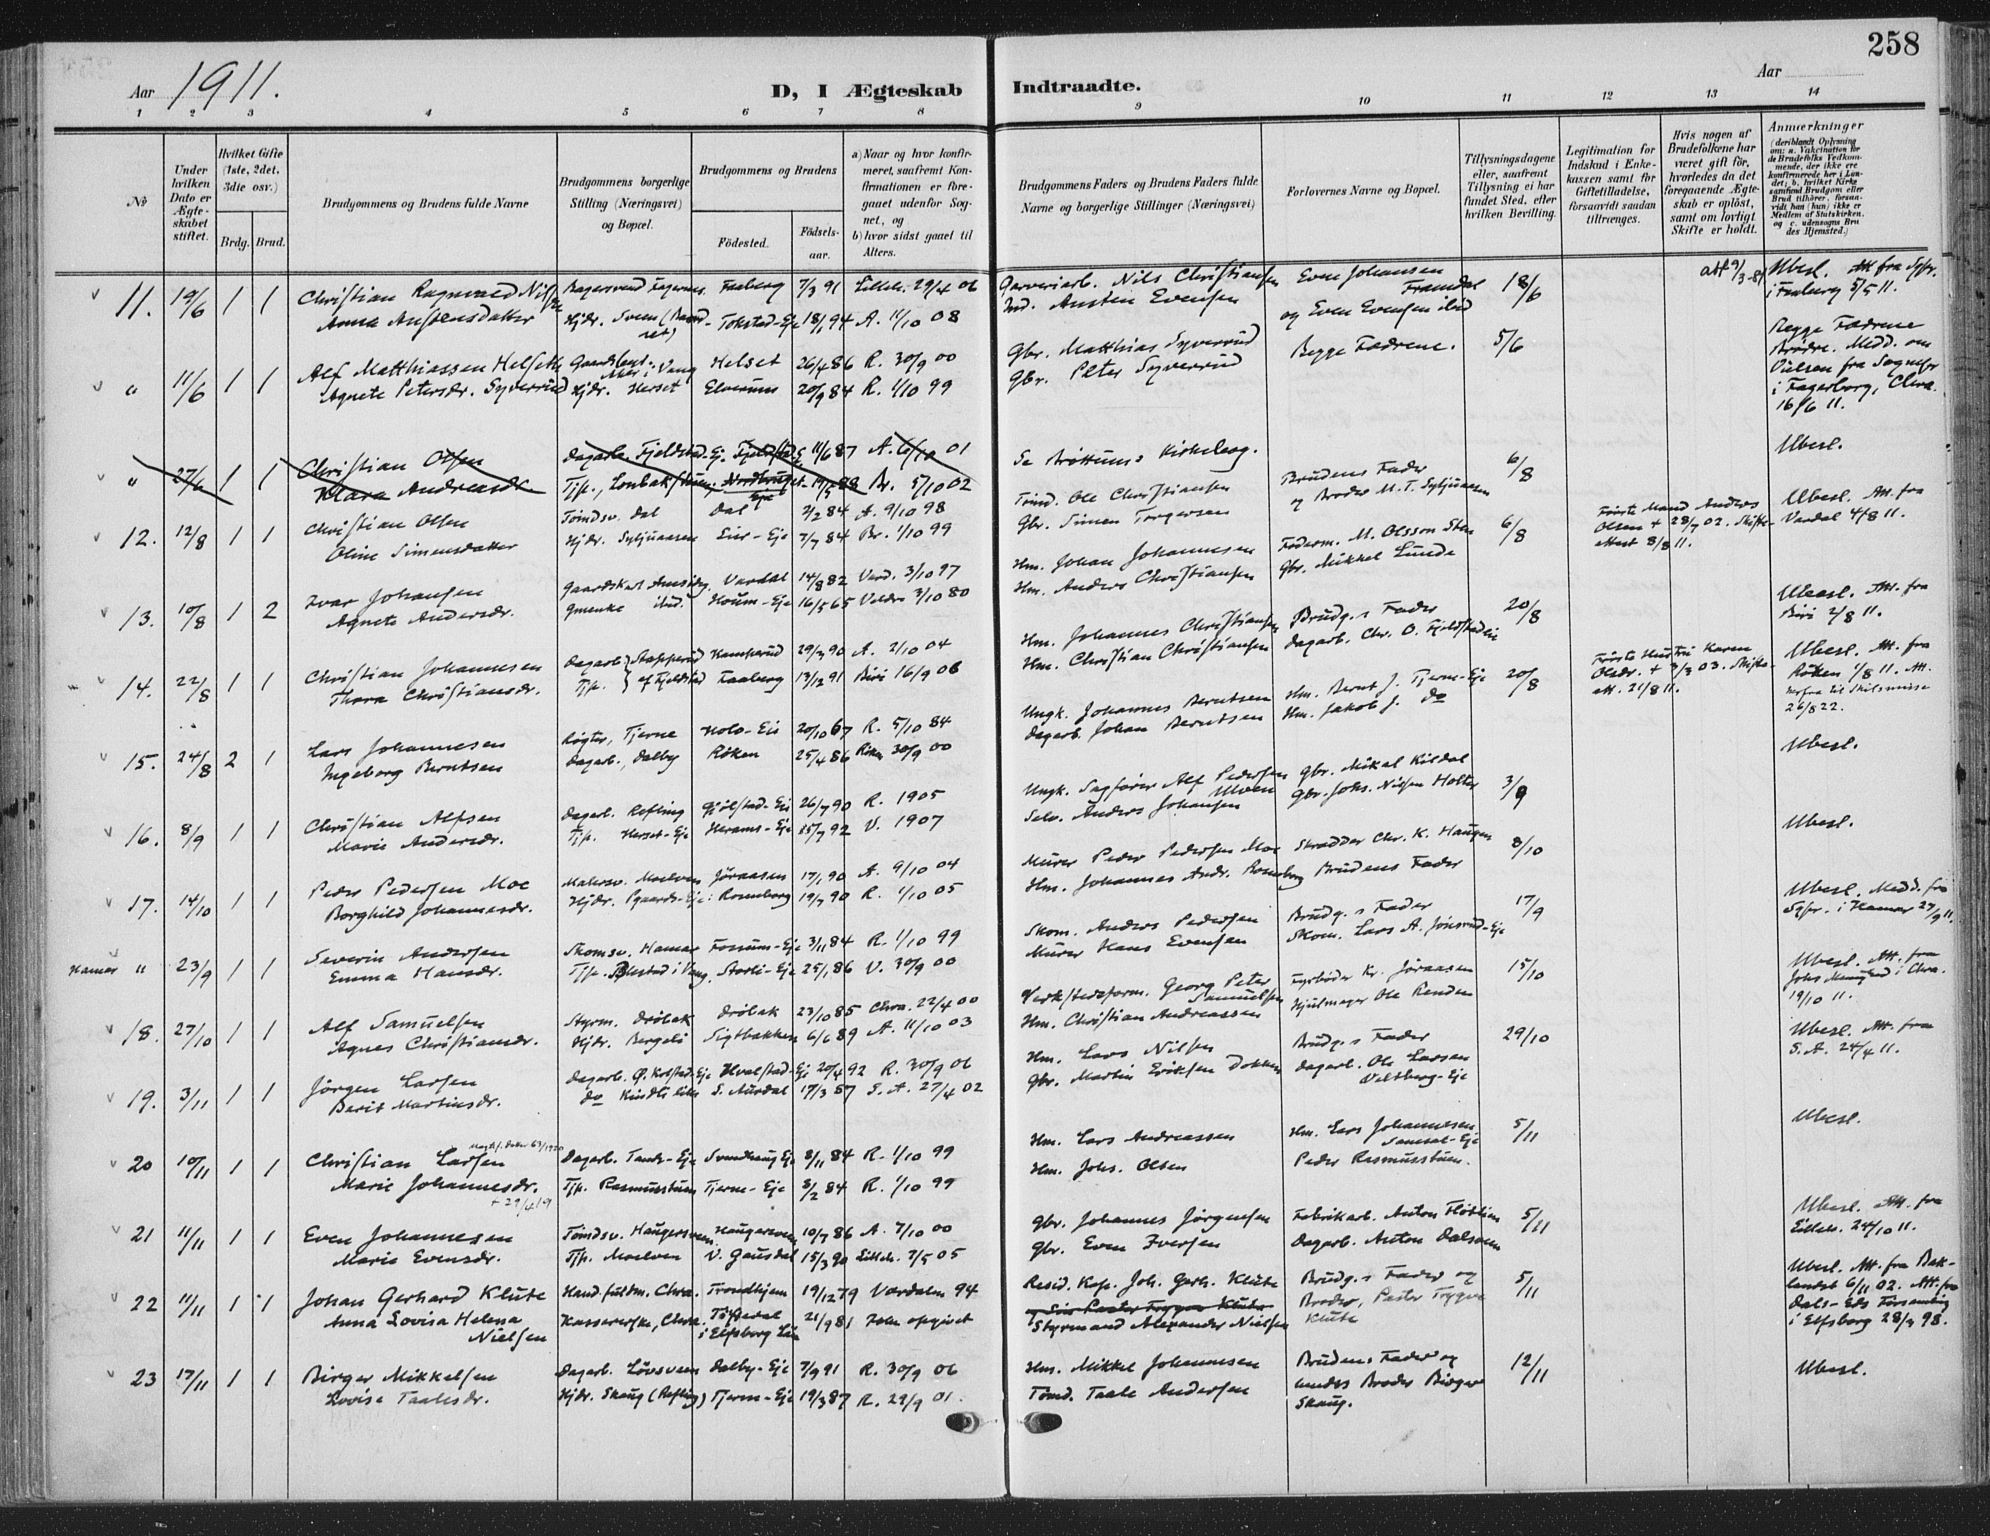 258
Aar 1911.
D, I Ægteskab Indtraadte.
Aar
1 2 3 4 5 6 7 8 9 10 11 12 13 14
No
Under hvilken Dato er Ægteskabet stiftet.
Hvilket Gifte (1ste, 2det, 3die osv.)
Brdg. Brud.
Brudgommens og Brudens fulde Navne
Brudgommens borgerlige Stilling (Næringsvei) og Bopæl.
Brudgommens og Brudens
Födested. Födselsaar.
a) Naar og hvor konfirmeret, saafremt Konfirmationen er foregaaet udenfor Sognet, og
b) hvor sidst gaaet til Alters.
Brudgommens Faders og Brudens Faders fulde Navne og borgerlige Stillinger (Næringsvei)
Forlovernes Navne og Bopæl.
Tillysningsdagene eller, saafremt Tillysning ei har fundet Sted, efter hvilken Bevilling.
Legitimation for Indskud i Enkekassen samt for Giftetilladelse, forsaavidt saadan tiltrænges.
Hvis nogen af Brudefolkene har været gift för, hvorledes da det foregaaende Ægteskab er oplöst, samt om lovligt Skifte er holdt.
Anmærkninger
11. 19/6 1 1 Christian Ragnvald Nilsen Bagersvend Fagernes Faaberg 7/3 91 Lilleh. 29/4 06 Garveriarb. Nils Christiansen Even Johansen Framdal 18/6 Ubesl. Att fra Sgpr.
Anna Austensdatter Hjdr. Sveen Tokstad-Eje 18/1 94 A. 11/10 08 Ind. Austen Evensen og Even Evensen ibid i Faaberg 5/5 11.
" 11/6 1 1 Alf Matthiassen Helseth Helset 26/4 86 R. 30/9 00 Gbr. Matthias Syverrud Begge Fædrene. 5/6 Begge Fædrene
Agnete Petersdr. Syverrud Hjdr. Herset Elverum 20/9 84 R. 1/10 99 Gbr. Peter Syverrud Brödre. Medd. om Vielsen fra Sognepr i Fagerborg, Chra. 16/6 11.
" 27/6 1 1 Christian Olsen Dagarb. Fjeldstad-Ej. 11/6 87 A. 6/10 01 Se Brøttums Kirkebog. Ubesl.
Klara Andreasdr Tjp. 88 Br. 5/10 02
12. 12/8 1 1 Christian Olsen Tömdsv. Dal Dal 2/2 84 A. 9/10 98 Tömd. Ole Christiansen Brudens Fader 6/8 Ubesl. Att. fra
Oline Simensdatter Hjdr. Syljuaasen Lier-Eje 7/7 84 Br. 1/10 99 Gbr. Simen Torgersen og Broder M. T. Syljuaasen Vardal 4/8 11.
13. 10/8 1 2 Ivar Johansen Vardal 14/8 82 Vard. 3/10 97 Hm. Johan Johannesen M. Olsson Sten 6/8 Første Mand Anders Olsen + 28/7 02. Skifteattest 8/8 11. Ubesl. Att. fra
Agnete Andersdr. Houm-Eje 16/5 65 3/10 80 Hm. Anders Christiansen Gbr. Mikkel Lunde Biri 2/8 11.
14. 22/8 1 1 Christian Johannesen Dagarb. Kamperud 29/7 90 A. 2/10 04 Hm. Johannes Christiansen Brudg.s Fader 20/8 Ubesl. Att. fra
Thora Christiansdr. Tjp. Faaberg 13/12 91 Biri 16/9 06 Hm. Christian Christiansen Dagarb. Chr. O. Fjeldstadeie
15. 24/8 2 1 Lars Johannesen Røgter, Tjerne Holo-Eie 20/10 67 R. 5/10 84 Ungk. Johannes Berntsen Hm. Bernt J. Tjerne-Eje 20/8 Første Hustru Karen Olsdr. + 3/3 03. Skifteatt. 21/8 11. Røken 1/8 11. Att.
Ingeborg Berntsen Dagarb., Dalby Røken 25/4 86 Røken 30/9 00 Dagarb. Johan Berntsen Hm. Jakob J. do 26/8 22.
16. 8/9 1 1 Christian Alfsen Dagarb. Refling Gjölstad-Eie 26/7 90 R. 1905 Ungk. Sagfører Alf Pedersen Ulven Gbr. Mikal Kildal 3/9 Ubesl.
Marie Andersdr. Tjp. Herset-Eje 92 V. 1907 Selv. Anders Johansen Gbr. Johs. Nilsen Holter
17. 14/10 1 1 Peder Pedersen Moe Malersv. Moelven Jöraasen 17/1 90 A. 9/10 04 Murer Peder Pedersen Moe Skrædder Chr. K. Haugen 8/10 Ubesl.
Borghild Johannesdr. Hjdr. Rosenborg 19/7 90 R. 1/10 05 Hm. Johannes Andr. Rosenborg Brudens Fader
Hamar " 23/9 1 1 Severin Andersen Skomsv. Hamar Fossum-Eje 3/11 84 R. 1/10 99 Skom. Anders Pedersen Brudg.s Fader 17/9 Ubesl. Medd. fra
Emma Hansdr. Tjp. Storli-Eje 25/1 86 V. 30/9 00 Murer Hans Evensen Skom. Lars A. Sgpr. i Hamar 27/9 11.
18. 27/10 1 1 Alf Samuelsen Styrm. Dröbak Dröbak 23/10 85 Chra. 22/4 00 Verkstedsform. Georg Peter Samuelsen Fyrböder Kr. Jöraasen 15/10 Ubesl. Att. fra
Agnes Christiansdr. Hjdr. Bergeli Sigtbakken 6/6 89 A. 11/10 03 Hm. Christian Andreassen Hjulmager Ole Renden 19/10 11.
19. 3/11 1 1 Jörgen Larsen Dagarb. Hvalstad-Eje 20/4 92 R. 30/9 06 Hm. Lars Nilsen Brudg.s Fader 29/10 Ubesl. Att. fra
Berit Martinsdr. do Kindli S. Aurdal 17/3 87 S. A. 27/4 02 Gbr. Martin Eriksen Dokken Dagarb. Ole Larsen Veltberg-Eje S. A. 24/4 11.
20 10/11 1 1 Christian Larsen Dagarb. Tande-Eje 8/11 84 R. 1/10 99 Hm. Lars Andreassen Hm. Lars Johannesen 5/11 Ubesl.
Marie Johannesdr. Tjp. Rasmusstuen Tjerne-Eje 5/2 84 R. 1/10 99 Hm. Johs. Olsen Peder Rasmusstuen.
+ 29/4 19
21 11/11 1 1 Even Johannesen Tömdsv. Haugersveen Haugersveen 10/7 86 A. 7/10 00 Gbr. Johannes Jörgensen Fabrikarb. Anton Flötlien 5/11 Ubesl. Att. fra
Marie Evensdr. Tjp. Moelven V. Gausdal 15/3 90 Lilleh. 7/5 05 Gbr. Even Iversen Dagarb. Anton Dalsveen Lilleh. 24/10 11.
22 11/11 1 1 Johan Gerhard Klüte Handl.fuldm. Chra. Trondhjem 19/12 79 Værdalen 94 Resid. Kap. Joh. Gerh. Klüte Brudg.s Fader og 5/11 Ubesl. Att. fra Baklandet 6/11 02. Att. fra
Anna Lovisa Helena Nielsen Kassererske, Chra. Töftedal i Elfsborg Län 21/9 81 Ikke opgivet Styrmand Alexander Nielsen Broder, Pastor Trygve Klüte Dals-Eds Församling i Elfsborg 28/3 98.
23 17/11 1 1 Birger Mikkelsen Dagarb. Lövsveen Dalby-Eje 7/9 91 R. 30/9 06 Hm. Mikkel Johannesen Brudens Fader og 12/11 Ubesl.
Lovise Taalesdr. Hjdr. Skaug (Refling) Tjerne-Eje 19/3 87 R. 29/9 01. Tömd. Taale Andersen hendes Broder Birger Skaug.